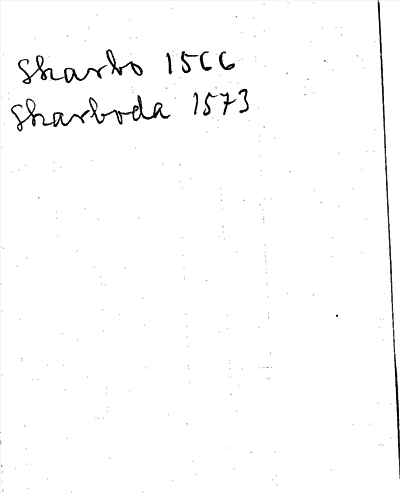 Skarbo 1566
Skarboda 1573